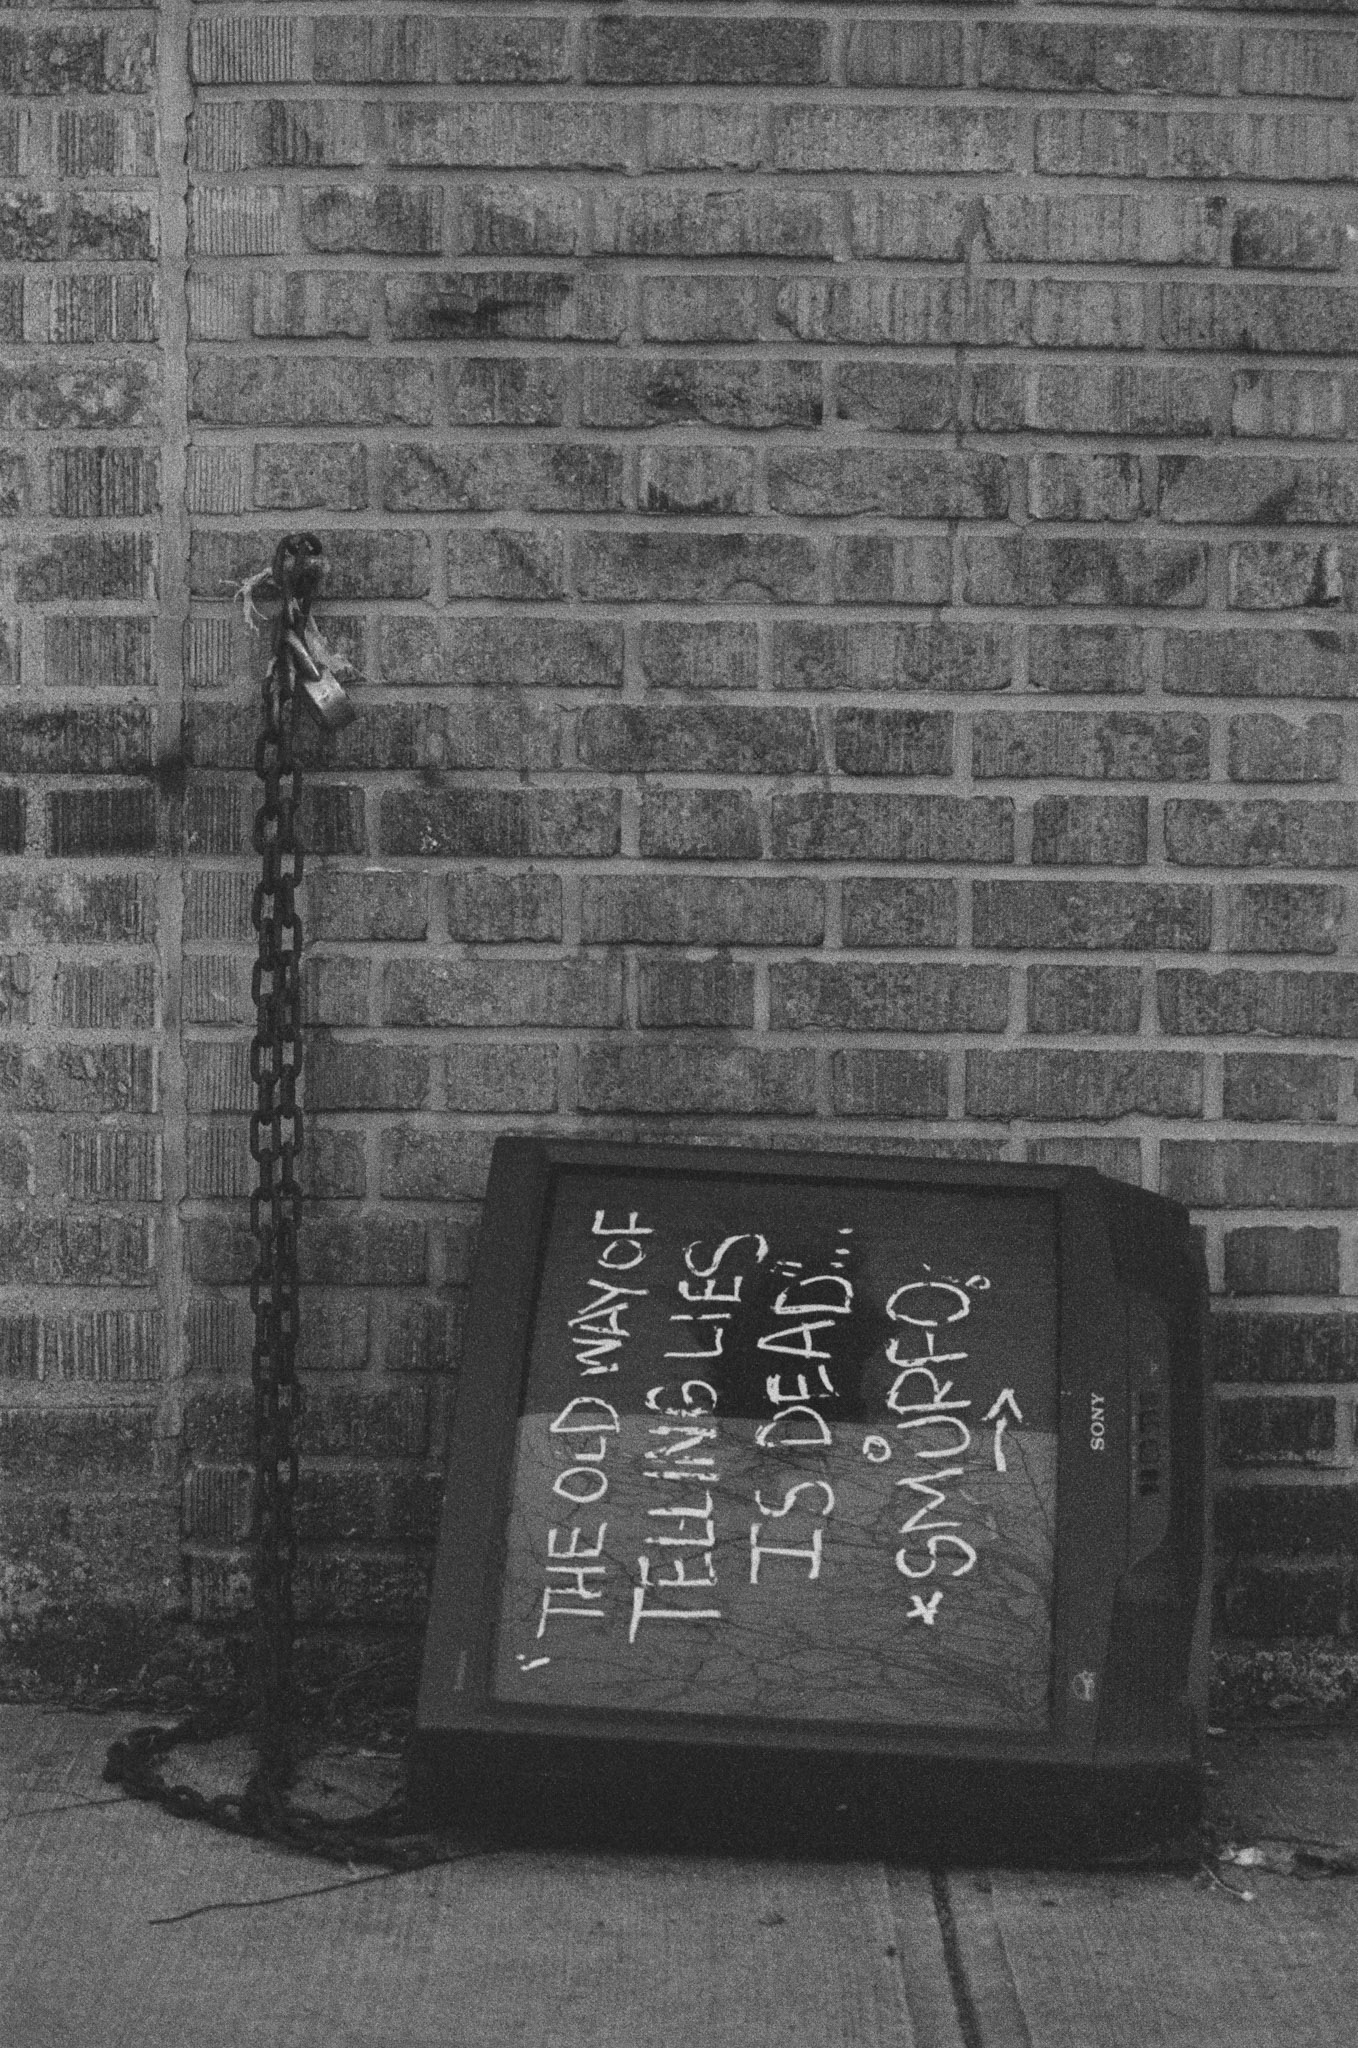 "THE OLD WAY OF
TELLING LIES
IS DEAD"...
*SMURFO.
SONY